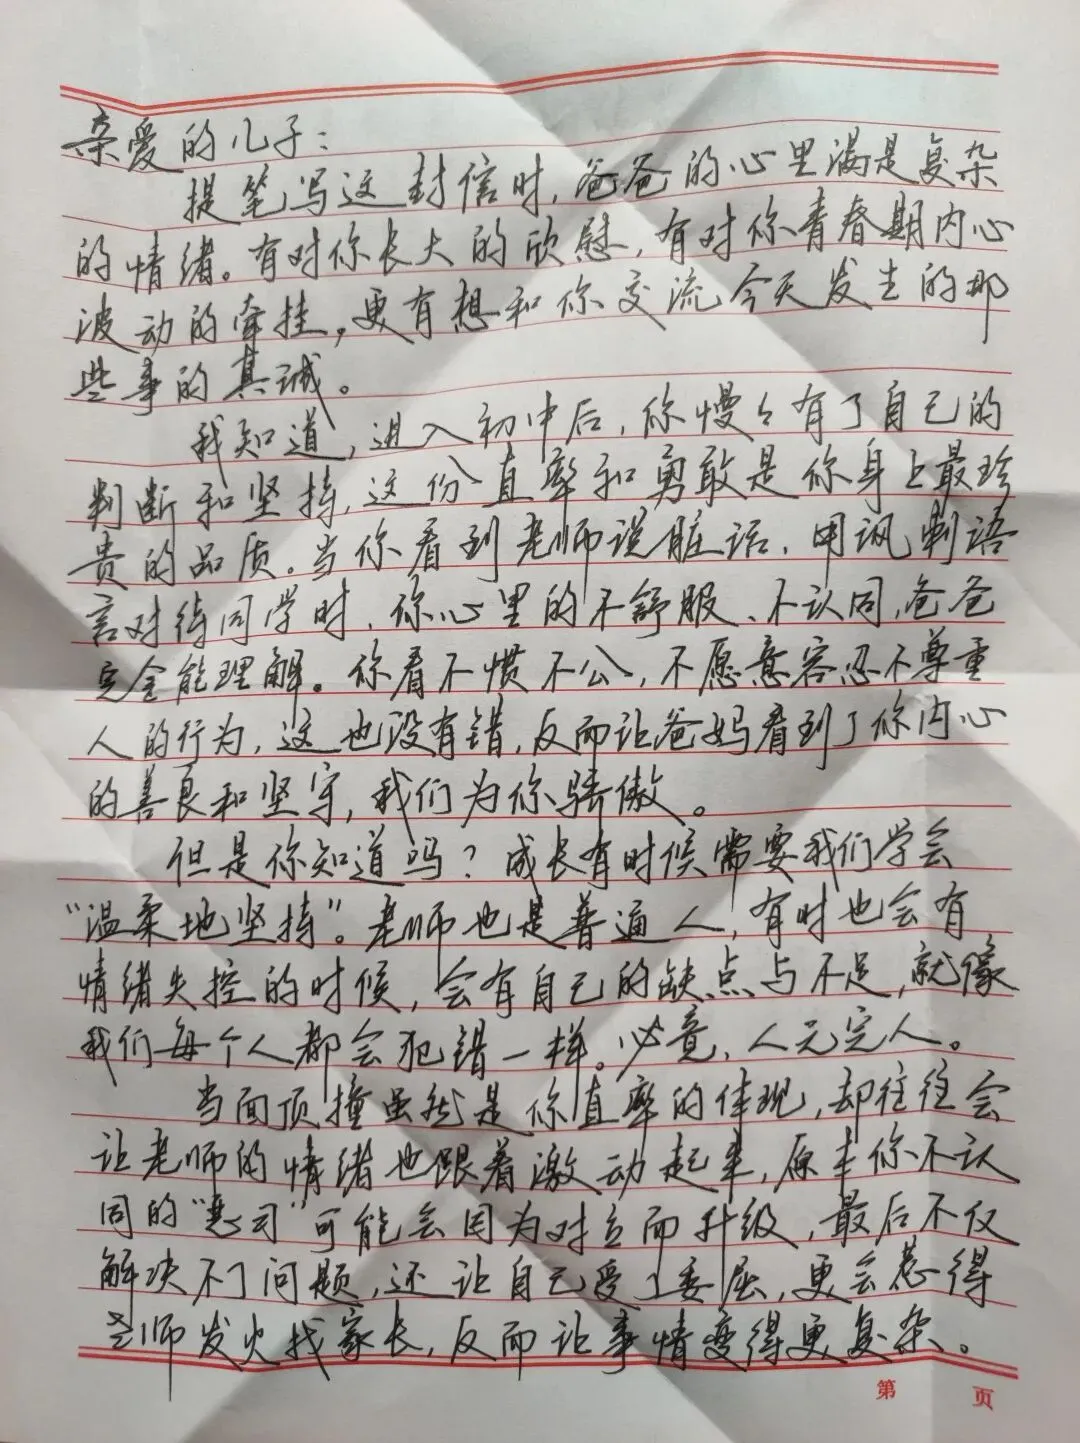 亲爱的儿子：
提笔写这封信时，爸爸的心里满是复杂
的情绪。有对你长大的欣慰，有对你青春期内心
波动的牵挂，更有想和你交流今天发生的那
些事的真诚。
我知道，进入初中后，你慢々有了自己的
判断和坚持，这份直率和勇敢是你身上最珍
贵的品质。当你看到老师说脏话、用讽刺语
言对待同学时，你心里的不舒服、不认同，爸爸
完全能理解。你看不惯不公，不愿意容忍不尊重
人的行为，这也没有错，反而让爸妈看到了你内心
的善良和坚守，我们为你骄傲。
但是你知道吗？成长有时候需要我们学会
“温柔地坚持”。老师也是普通人，有时也会有
情绪失控的时候，会有自己的缺点与不足，就像
我们每个人都会犯错一样。必竟，人无完人。
当面顶撞虽然是你直率的体现，却往往会
让老师的情绪也跟着激动起来，原本你不认
同的“恶习”可能会因为对立而升级，最后不仅
解决不了问题，还让自己受了委屈，更会惹得
老师发火找家长，反而让事情变得更复杂。
第 页